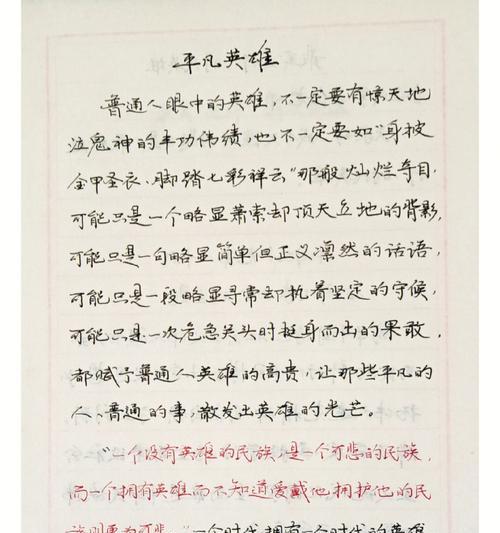 平凡英雄
普通人眼中的英雄，不一定要有惊天地
泣鬼神的丰功伟绩，也不一定要如"身披
金甲圣衣、脚踏七彩祥云"那般灿烂夺目，
可能只是一个略显萧索却顶天立地的背影，
可能只是一句略显简单但正义凛然的话语，
可能只是一段略显寻常却执着坚定的守候，
可能只是一次危急关头时挺身而出的果敢，
都赋予普通人英雄的高贵，让那些平凡的
人、普通的事，散发出英雄的光芒。
"一个没有英雄的民族，是一个可悲的民族，
而一个拥有英雄而不知道爱戴他拥护他的民
族则更为可悲。"一个时代拥有一个时代的英雄